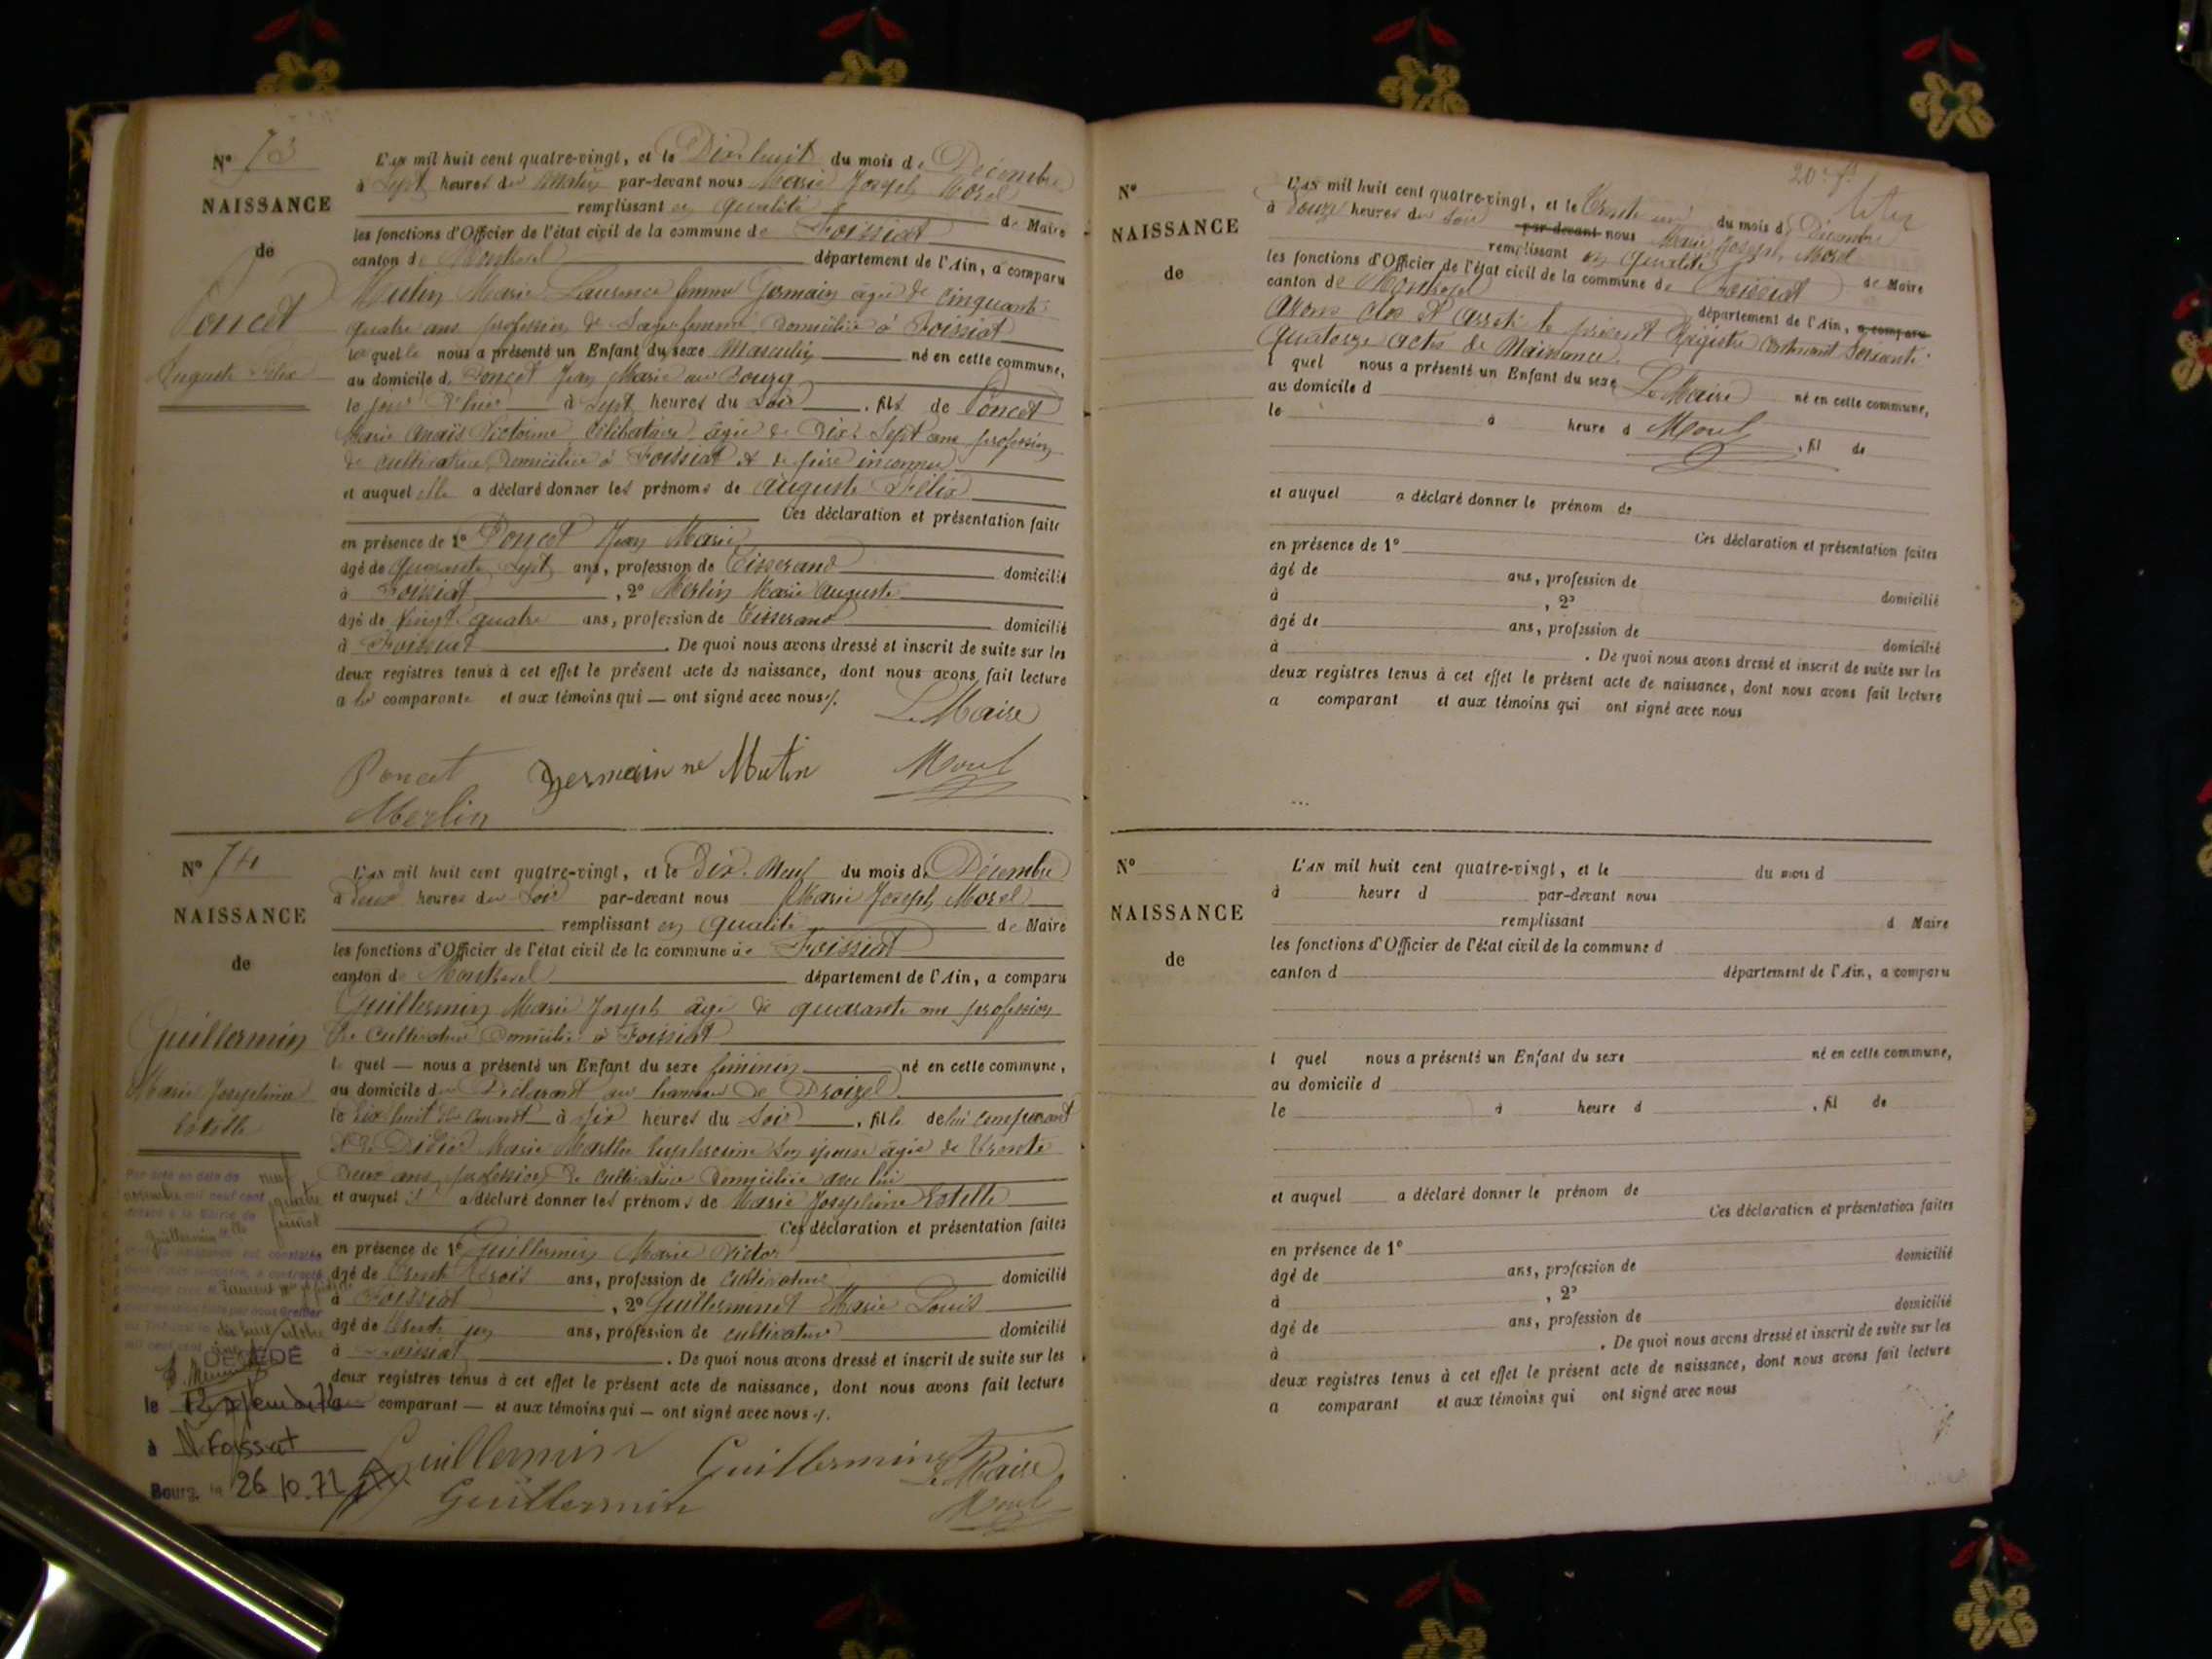 N° 73
NAISSANCE
de
Poncet
Auguste Félix
L'AN mil huit cent quatre-vingt, et le Dix huit du mois de Décembre
à Sept heures du Matin par-devant nous Marie Joseph Morel
remplissant en qualité de Maire
les fonctions d'Officier de l'état civil de la commune de Foissiat
canton de Montrevel département de l'Ain, a comparu
Mutin Marie Laurence femme Germain âgée de Cinquante
quatre ans profession de Sage femme Domiciliée à Foissiat
laquelle nous a présenté un Enfant du sexe Masculin né en cette commune,
au domicile de Poncet Jean Marie au Bourg
le jour d'hier à Sept heures du Soir, fils de Poncet
Marie Anaïs Victorine Célibataire âgée de Dix Sept ans profession
de cultivatrice Domiciliée à Foissiat et de père inconnu
et auquel elle a déclaré donner les prénoms de Auguste Félix
Ces déclaration et présentation faite
en présence de 1° Poncet Jean Marie
âgé de Quarante Sept ans, profession de Tisserand domicilié
à Foissiat, 2° Merlin Marie Auguste
âgé de Vingt quatre ans, profession de Tisserand domicilié
à Foissiat. De quoi nous avons dressé et inscrit de suite sur les
deux registres tenus à cet effet le présent acte de naissance, dont nous avons fait lecture
a la comparante et aux témoins qui — ont signé avec nous
Le Maire
Poncet Germain né Mutin Morel
Merlin
N° 74
NAISSANCE
de
Guillermin
Marie Joséphine
Estelle
L'AN mil huit cent quatre-vingt, et le Dix Neuf du mois de Décembre
à Deux heures du Soir par-devant nous Marie Joseph Morel
remplissant en qualité de Maire
les fonctions d'Officier de l'état civil de la commune de Foissiat
canton de Montrevel département de l'Ain, a comparu
Guillermin Marie Joseph âgé de quarante ans profession
de Cultivateur Domicilié à Foissiat
lequel — nous a présenté un Enfant du sexe féminin né en cette commune,
au domicile du Déclarant au hameau de Groizel
le Dix huit du Courant à Six heures du Soir, fille de lui Comparant
et de Didier Marie Marthe Euphrosine Son épouse âgée de Trente
Deux ans profession de Cultivatrice Domiciliée avec lui
et auquel il a déclaré donner les prénoms de Marie Joséphine Estelle
Ces déclaration et présentation faites
en présence de 1° Guillermin Marie Victor
âgé de Trente trois ans, profession de Cultivateur domicilié
à Foissiat, 2° Guillerminet Marie Louis
âgé de Trente un ans, profession de cultivateur domicilié
à Foissiat. De quoi nous avons dressé et inscrit de suite sur les
deux registres tenus à cet effet le présent acte de naissance, dont nous avons fait lecture
comparant — et aux témoins qui — ont signé avec nous
Guillermin Guillerminet Le Maire
Guillermin Morel
Par acte en date du neuf
mil neuf cent quatre
DÉCÉDÉ
le 12
à Foissiat
Bourg, le 26.10.72
N°
NAISSANCE
de
L'AN mil huit cent quatre-vingt, et le Trente un du mois de Décembre
à Douze heures du Soir par-devant nous Marie Joseph Morel
remplissant en qualité de Maire
les fonctions d'Officier de l'état civil de la commune de Foissiat
canton de Montrevel département de l'Ain, a comparu
Avons clos et arrêté le présent Régistre Contenant Soixante
Quatorze actes de Naissance.
l quel nous a présenté un Enfant du sexe Le Maire né en cette commune,
au domicile d
le à heure d Morel, fil de
et auquel a déclaré donner le prénom de
Ces déclaration et présentation faites
en présence de 1°
âgé de ans, profession de domicilié
à , 2°
âgé de ans, profession de domicilié
à . De quoi nous avons dressé et inscrit de suite sur les
deux registres tenus à cet effet le présent acte de naissance, dont nous avons fait lecture
a comparant et aux témoins qui ont signé avec nous
N°
NAISSANCE
de
L'AN mil huit cent quatre-vingt, et le du mois d
à heure d par-devant nous
remplissant d Maire
les fonctions d'Officier de l'état civil de la commune d
canton d département de l'Ain, a comparu
l quel nous a présenté un Enfant du sexe né en cette commune,
au domicile d
le à heure d , fil de
et auquel a déclaré donner le prénom de
Ces déclaration et présentation faites
en présence de 1°
âgé de ans, profession de domicilié
à , 2°
âgé de ans, profession de domicilié
à . De quoi nous avons dressé et inscrit de suite sur les
deux registres tenus à cet effet le présent acte de naissance, dont nous avons fait lecture
a comparant et aux témoins qui ont signé avec nous